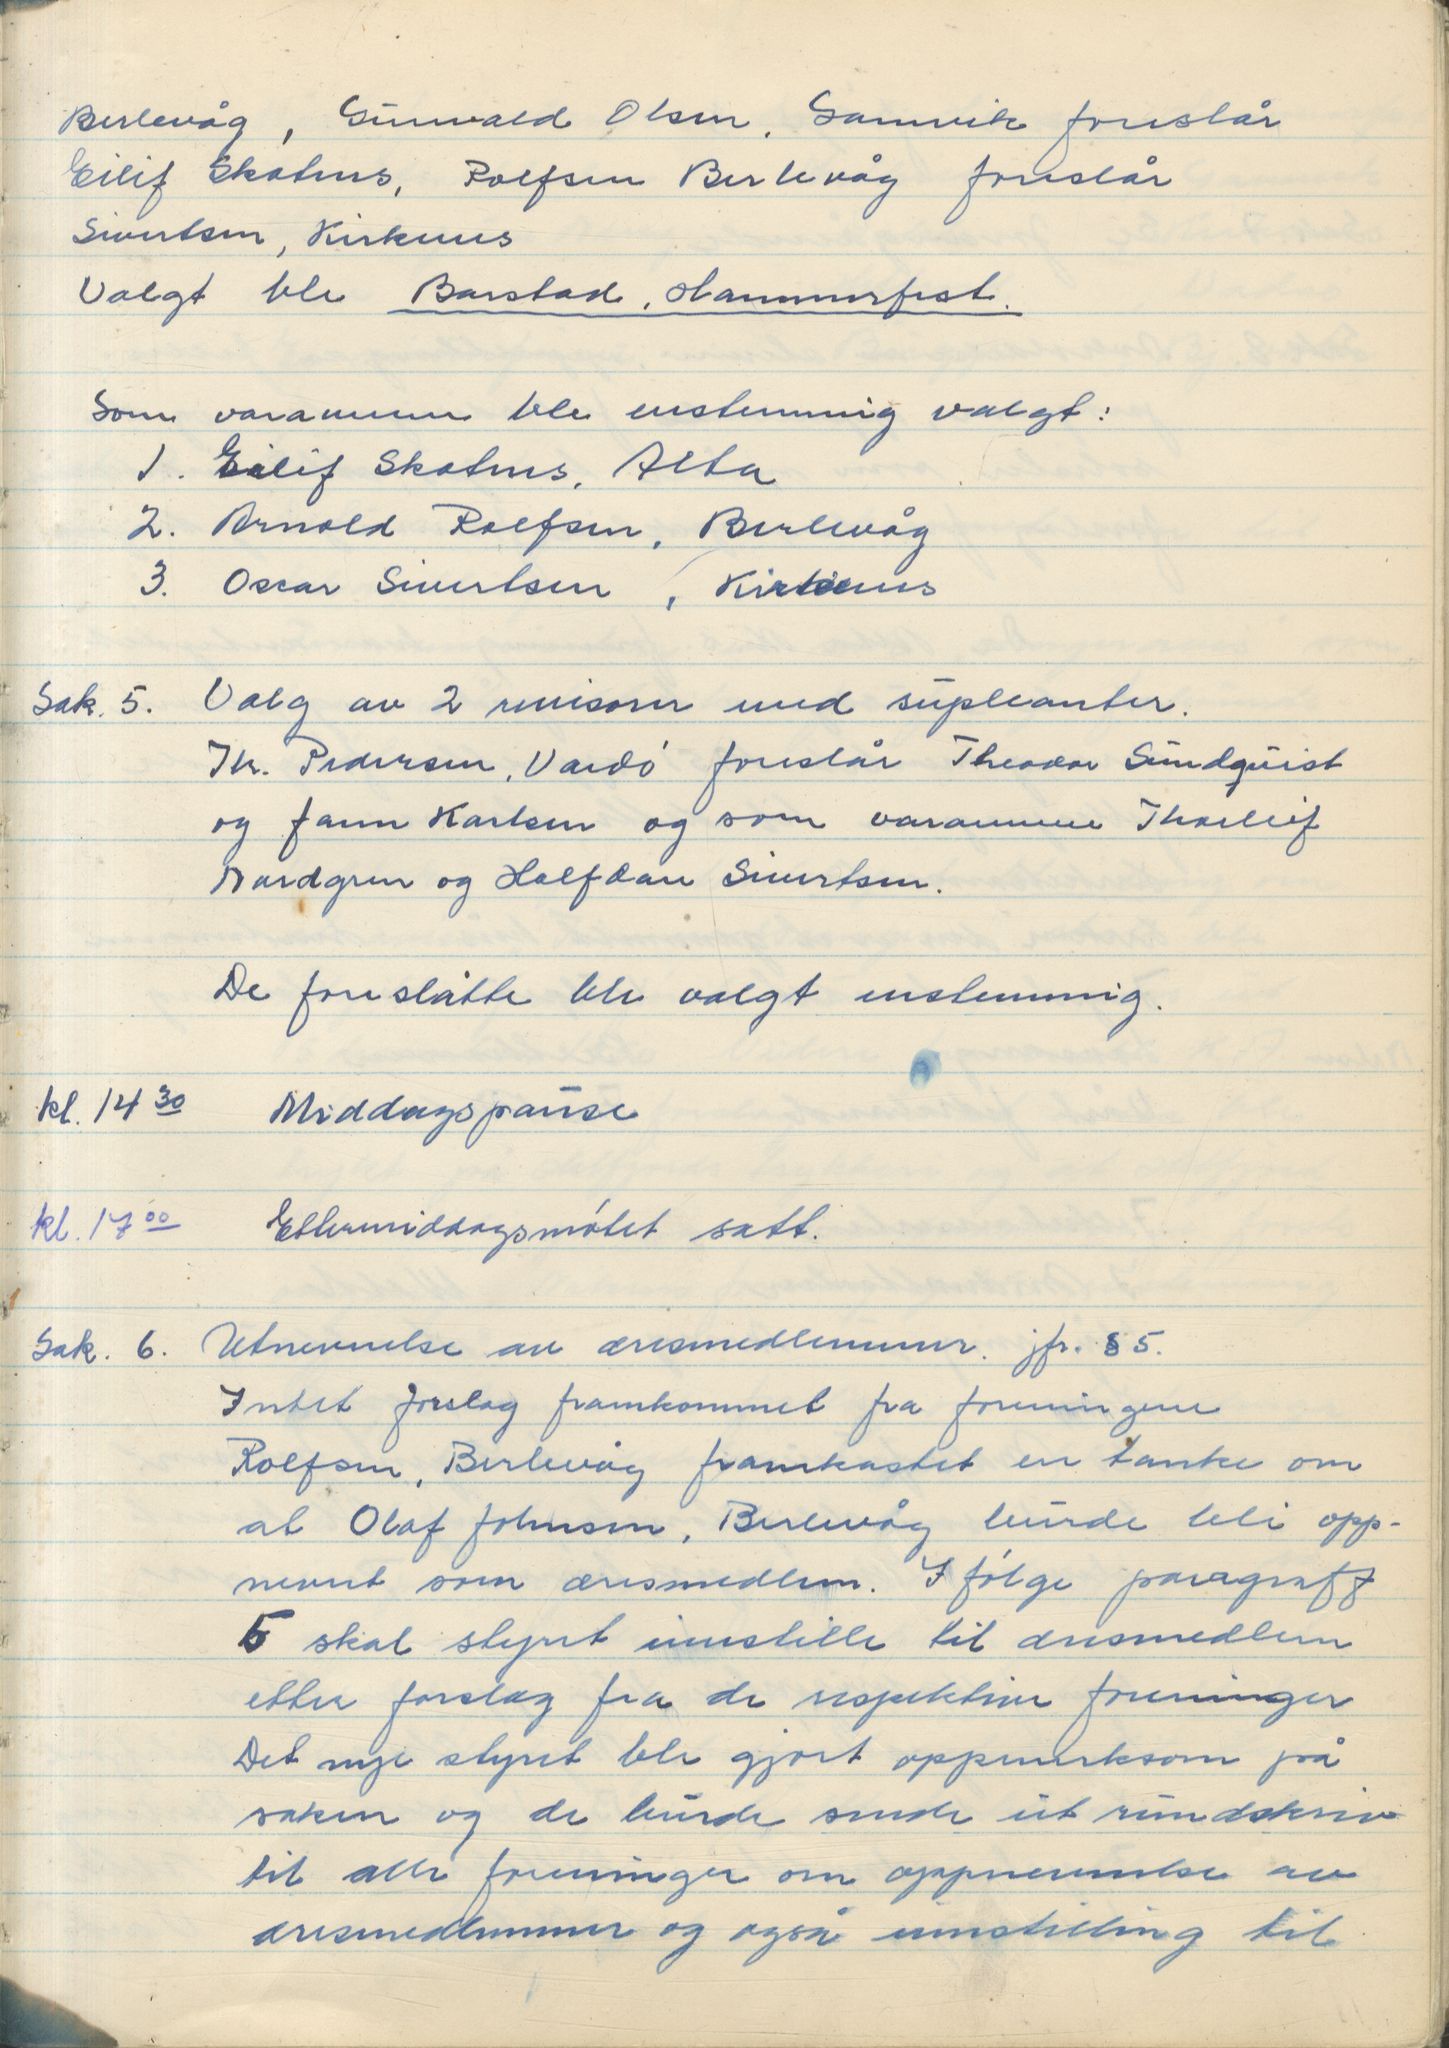 Berlevåg, Gunvald Olsen, Gamvik foreslår
Eilif Skotnes, Rolfsen Berlevåg foreslår
Sivertsen, Kirkenes
Valgt ble Barstad, Hammerfest.
Som varamenn ble enstemmig valgt:
1. Eilif Skotnes, Alta
2. Arnold Rolfsen, Berlevåg
3. Oscar Sivertsen, Kirkenes
Sak. 5. Valg av 2 revisorer med supleanter.
Th. Pedersen, Vardö foreslår Theodor Sundquist
og Jann Karlsen og som varamenn Thorleif
Nordgren og Halfdan Sivertsen.
De foreslåtte ble valgt enstemmig.
kl. 14 30 Middagspause
kl. 17 00 Ettermiddagsmötet satt.
Sak. 6. Utnevnelse av æresmedlemmer. jfr. § 5.
Intet forslag framkommet fra foreningene
Rolfsen, Berlevåg framkastet en tanke om
at Olaf Johnsen, Berlevåg burde bli opp-
nevnt som æresmedlem. I fölge paragraff
5 skal styret innstille til æresmedlem
etter forslag fra de respektive foreninger
Det nye styret ble gjort oppmerksom på
saken og de burde sende ut rundskriv
til alle foreninger om oppnevnelse av
æresmedlemmer og også innstilling til